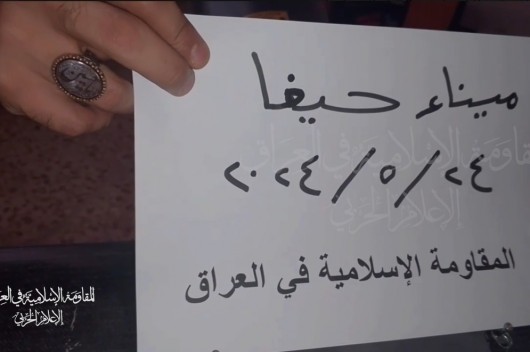 ميناء حيفا
٢٠٢٤/٥/٢٤
المقاومة الإسلامية في العراق
المقاومة الإسلامية في
الإعلام الحربي
المقاومة الإسلامية في
الإعلام الحربي